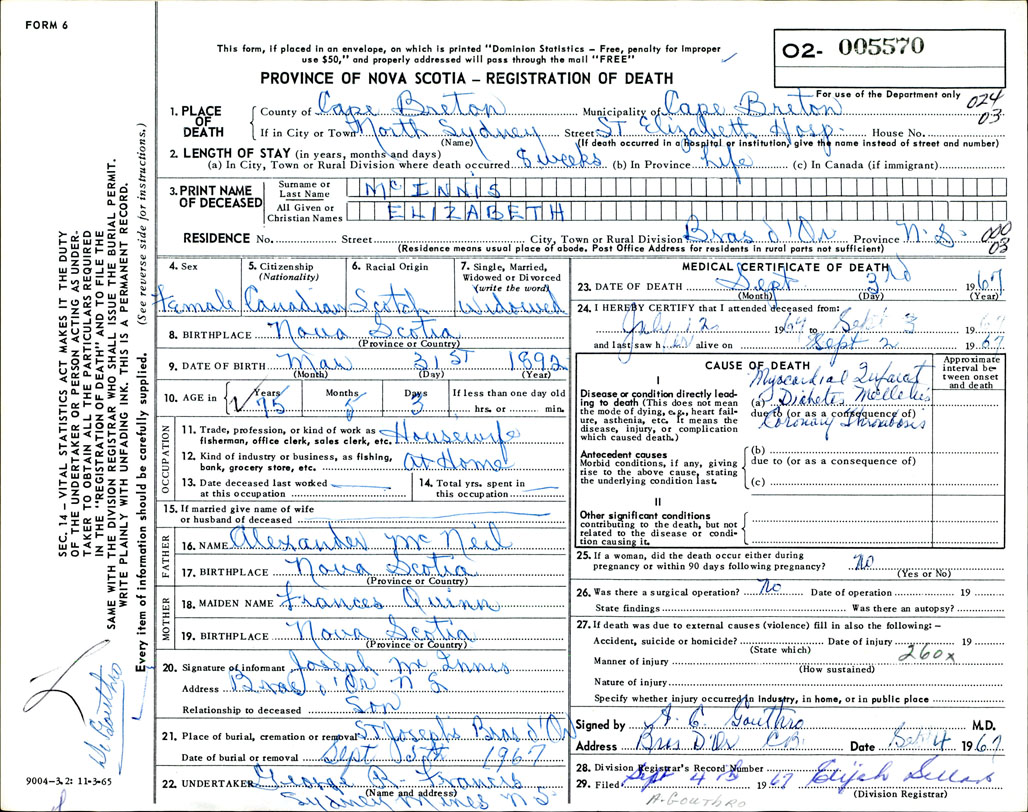 FORM 6
This form, if placed in an envelope, on which is printed "Dominion Statistics – Free, penalty for improper
use $50," and properly addressed will pass through the mail "FREE"
02- 005570
PROVINCE OF NOVA SCOTIA – REGISTRATION OF DEATH
For use of the Department only 024
03
1. PLACE OF DEATH
County of Cape Breton Municipality of Cape Breton
If in City or Town North Sydney Street ST Elizabeth Hosp. House No.
(Name) (If death occurred in a hospital or institution, give the name instead of street and number)
2. LENGTH OF STAY (in years, months and days)
(a) In City, Town or Rural Division where death occurred 8 weeks (b) In Province Life (c) In Canada (if immigrant)
3. PRINT NAME OF DECEASED
Surname or Last Name McINNIS
All Given or Christian Names ELIZABETH
RESIDENCE No. Street City, Town or Rural Division Bras d'Or Province N.S. 000
03
(Residence means usual place of abode. Post Office Address for residents in rural parts not sufficient)
4. Sex 5. Citizenship (Nationality) 6. Racial Origin 7. Single, Married, Widowed or Divorced (write the word)
Female Canadian Scotch Widowed
8. BIRTHPLACE Nova Scotia
(Province or Country)
9. DATE OF BIRTH Mar 31st 1892
(Month) (Day) (Year)
10. AGE in Years 75 Months Days 3 If less than one day old
hrs. or min.
OCCUPATION
11. Trade, profession, or kind of work as fisherman, office clerk, sales clerk, etc. Housewife
12. Kind of industry or business, as fishing, bank, grocery store, etc. At Home
13. Date deceased last worked at this occupation
14. Total yrs. spent in this occupation
15. If married give name of wife or husband of deceased
FATHER
16. NAME Alexander McNeil
17. BIRTHPLACE Nova Scotia
(Province or Country)
MOTHER
18. MAIDEN NAME Frances Quinn
19. BIRTHPLACE Nova Scotia
(Province or Country)
20. Signature of informant Joseph McInnis
Address Bras d'Or N S
Relationship to deceased Son
21. Place of burial, cremation or removal ST Joseph's Bras d'Or
Date of burial or removal Sept 5th 1967
22. UNDERTAKER George B. Francis
(Name and address)
Sydney Mines N.S.
MEDICAL CERTIFICATE OF DEATH
23. DATE OF DEATH Sept 3rd 1967
(Month) (Day) (Year)
24. I HEREBY CERTIFY that I attended deceased from:
July 12 1967 to Sept 3 1967
and last saw her alive on Sept 2 1967
CAUSE OF DEATH
Approximate interval between onset and death
I
Disease or condition directly leading to death (This does not mean the mode of dying, e.g., heart failure, asthenia, etc. It means the disease, injury, or complication which caused death.)
Myocardial Infarct
(a) Diabetes Mellitus
due to (or as a consequence of)
Coronary Thrombosis
Antecedent causes
Morbid conditions, if any, giving rise to the above cause, stating the underlying condition last.
(b)
due to (or as a consequence of)
(c)
II
Other significant conditions
contributing to the death, but not related to the disease or condition causing it.
25. If a woman, did the death occur either during
pregnancy or within 90 days following pregnancy? No
(Yes or No)
26. Was there a surgical operation? No Date of operation 19
State findings Was there an autopsy?
27. If death was due to external causes (violence) fill in also the following: –
Accident, suicide or homicide? Date of injury 19
(State which)
Manner of injury 260x
(How sustained)
Nature of injury
Specify whether injury occurred in Industry, in home, or in public place
Signed by A. C. Gouthro M.D.
Address Bras D'Or C.B. Date Sept 4 1967
28. Division Registrar's Record Number
29. Filed Sept 4th 1967 Elijah
(Division Registrar)
A-GOUTHRO
SEC. 14 – VITAL STATISTICS ACT MAKES IT THE DUTY
OF THE UNDERTAKER OR PERSON ACTING AS UNDER-
TAKER TO OBTAIN ALL THE PARTICULARS REQUIRED
IN THE "REGISTRATION OF DEATH" AND TO FILE THE
SAME WITH THE DIVISION REGISTRAR WHO SHALL ISSUE THE BURIAL PERMIT.
WRITE PLAINLY WITH UNFADING INK. THIS IS A PERMANENT RECORD.
Every item of information should be carefully supplied. (See reverse side for instructions.)
Dr Gouthro
9004-3.2: 11-3-65